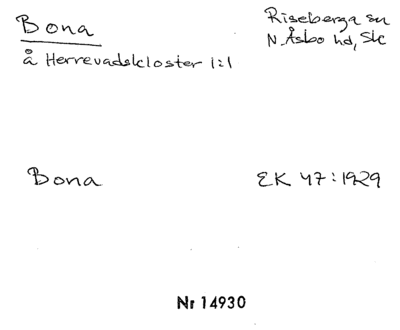 Bona
Riseberga sn
N. Åsbo hd, Sk
å Herrevadskloster 1:1
Bona
EK 47:1929
Nr 14930